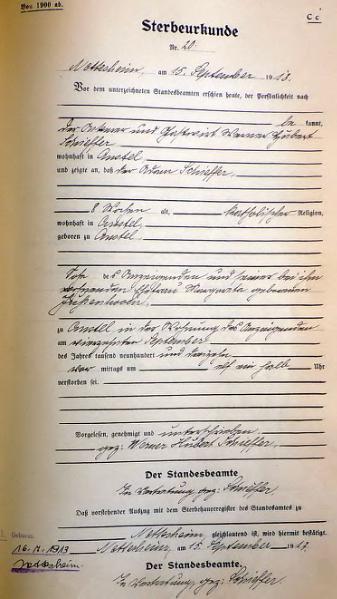 Von 1900 ab.
C c
Sterbeurkunde
Nr. 20.
Nettersheim, am 15. September 1913.
Vor dem unterzeichneten Standesbeamten erschien heute, der Persönlichkeit nach
be kannt,
der Ackerer und Gastwirt Werner Hubert
Schieffer
wohnhaft in
und zeigte an, daß der Adam Schieffer,
8 Wochen alt, katholischer Religion,
wohnhaft in
geboren zu
Sohn des Anzeigenden und seiner bei ihm
wohnenden Ehefrau Margareta geborenen
zu in der Wohnung des Anzeigenden
am vierzehnten September
des Jahres tausend neunhundert und dreizehn
vor mittags um elf ein halb Uhr
verstorben sei.
Vorgelesen, genehmigt und unterschrieben
gez: Werner Hubert Schieffer.
Der Standesbeamte,
In Vertretung gez: Schieffer.
Daß vorstehender Auszug mit dem Sterbehauptregister des Standesamtes zu
Nettersheim, gleichlautend ist, wird hiermit bestätigt.
Nettersheim, am 15. September 1913.
Der Standesbeamte.
In Vertretung gez: Schieffer.
1913